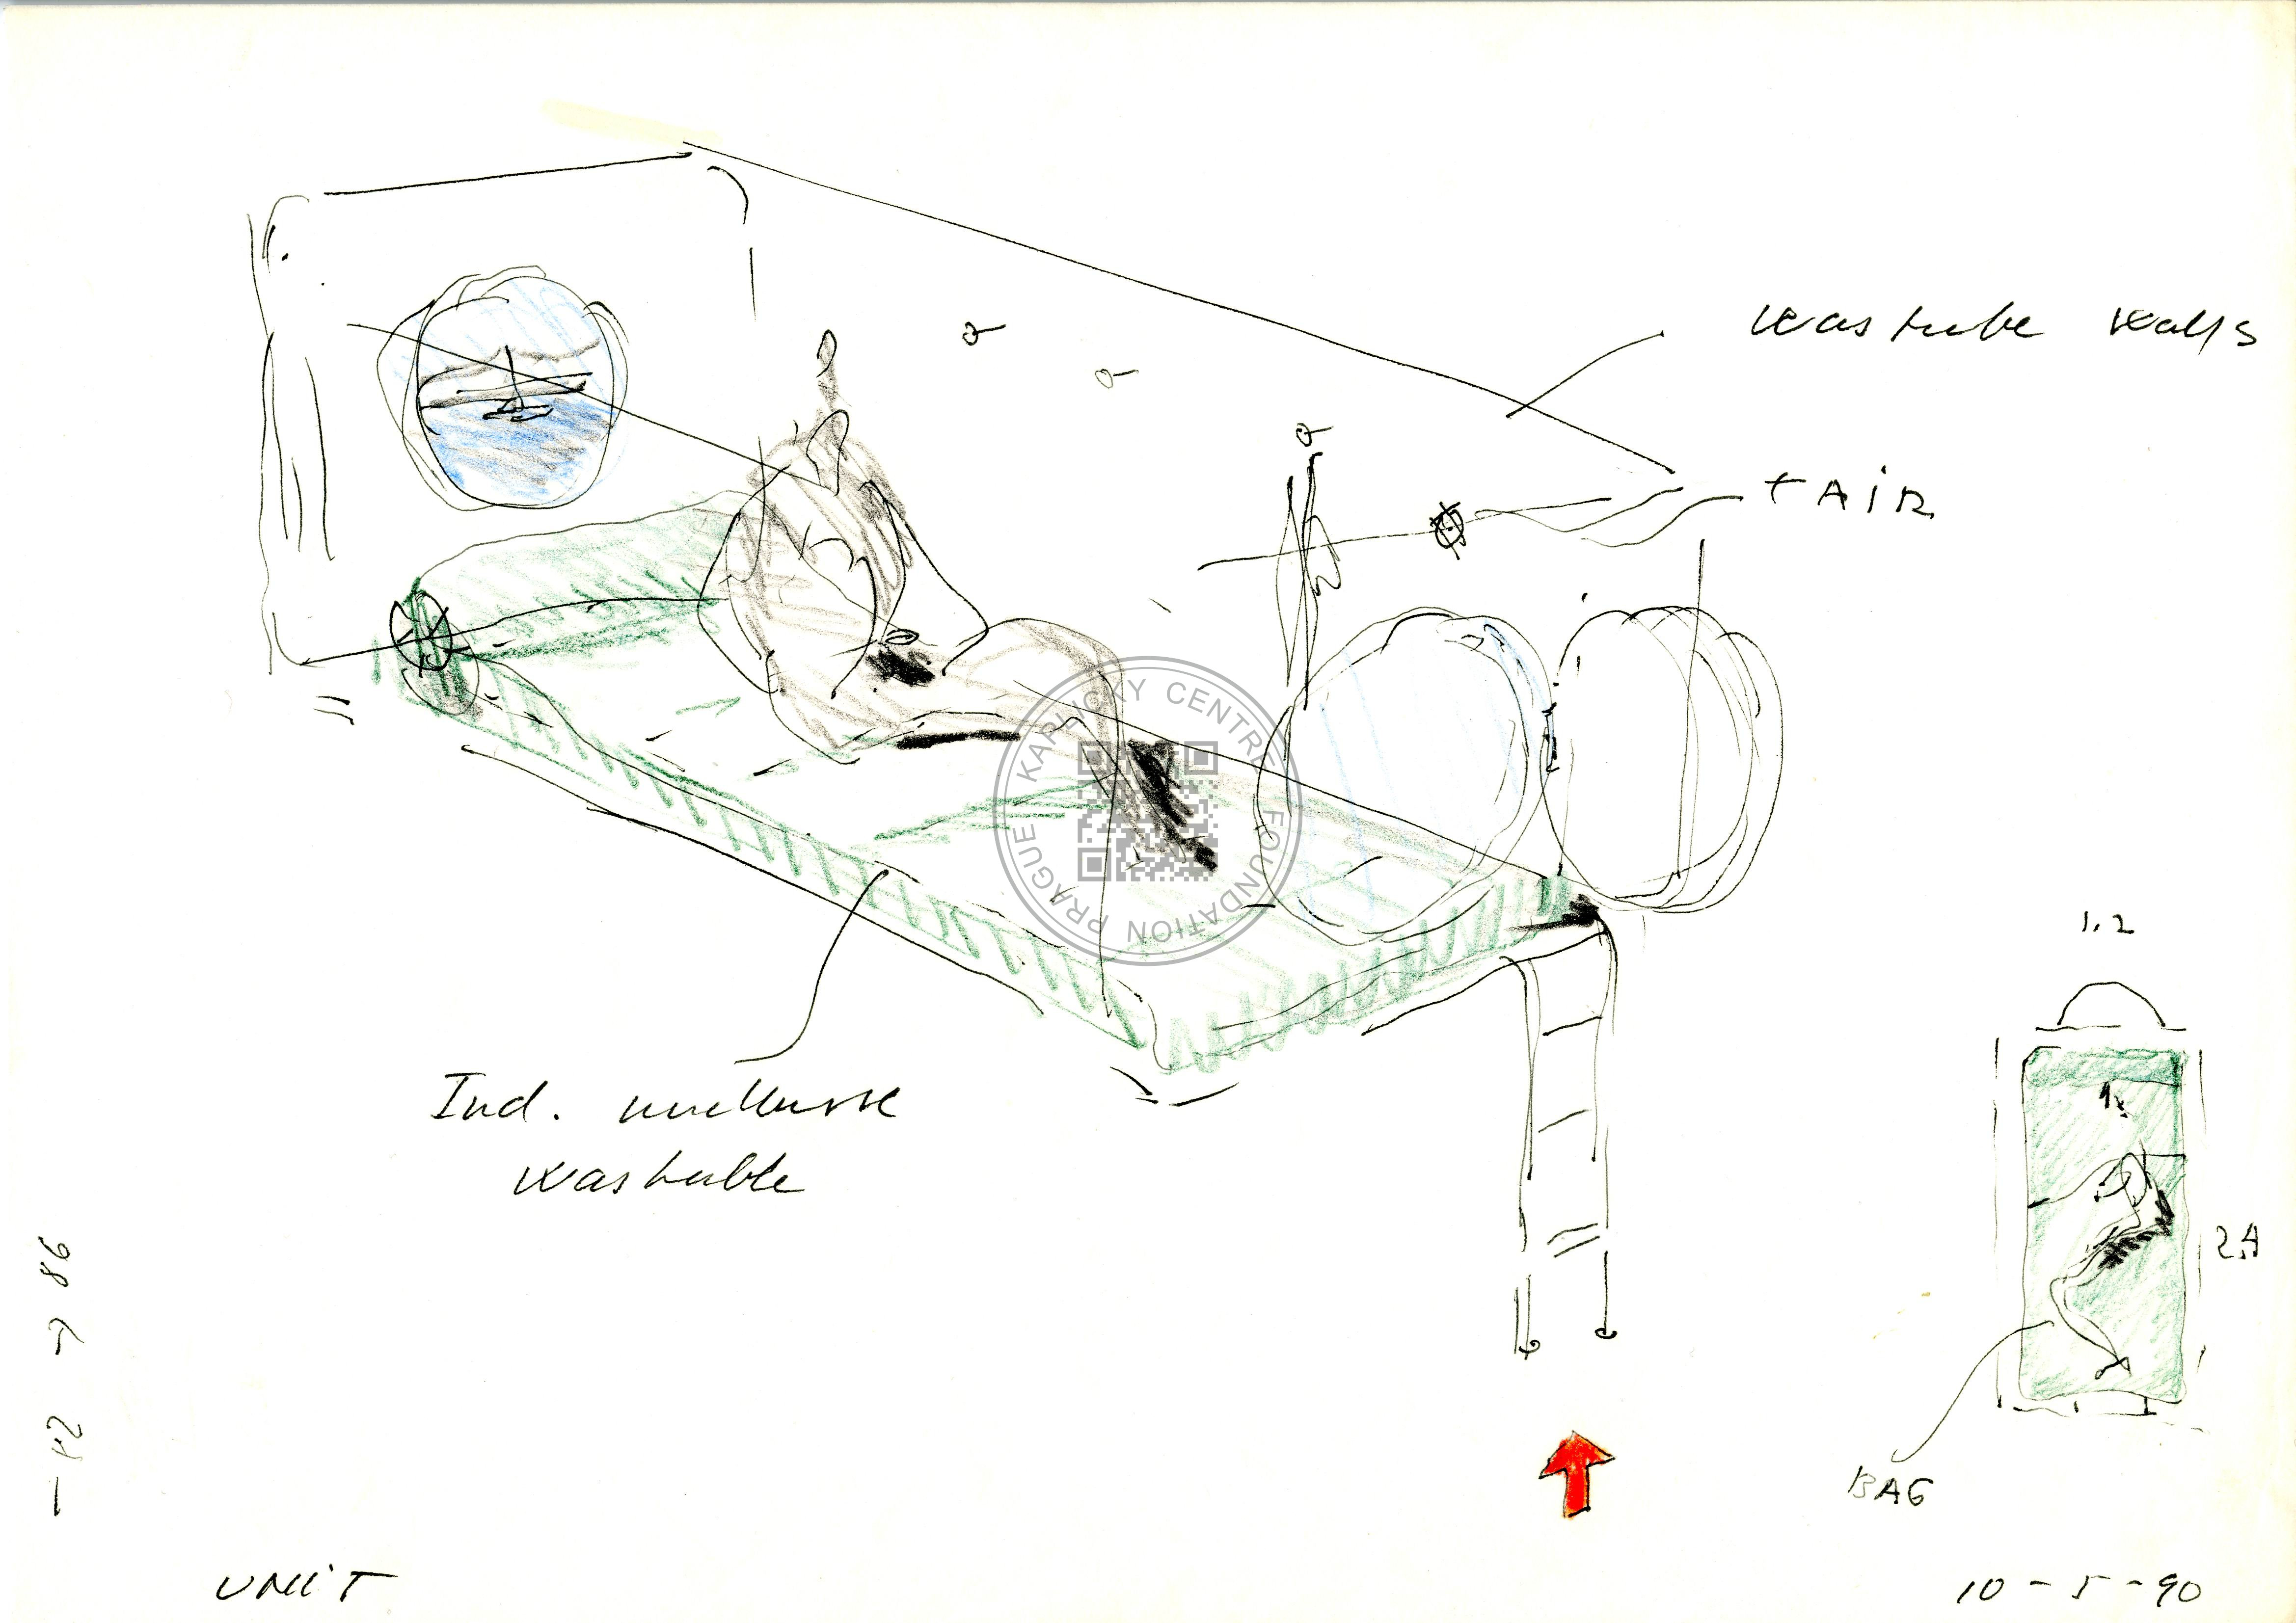 washable walls
+ AIR
KAPLICKY CENTRE FOUNDATION PRAGUE
1.2
Ind. mattress
washable
2.1
BAG
86
UNIT
10 - 5 - 90